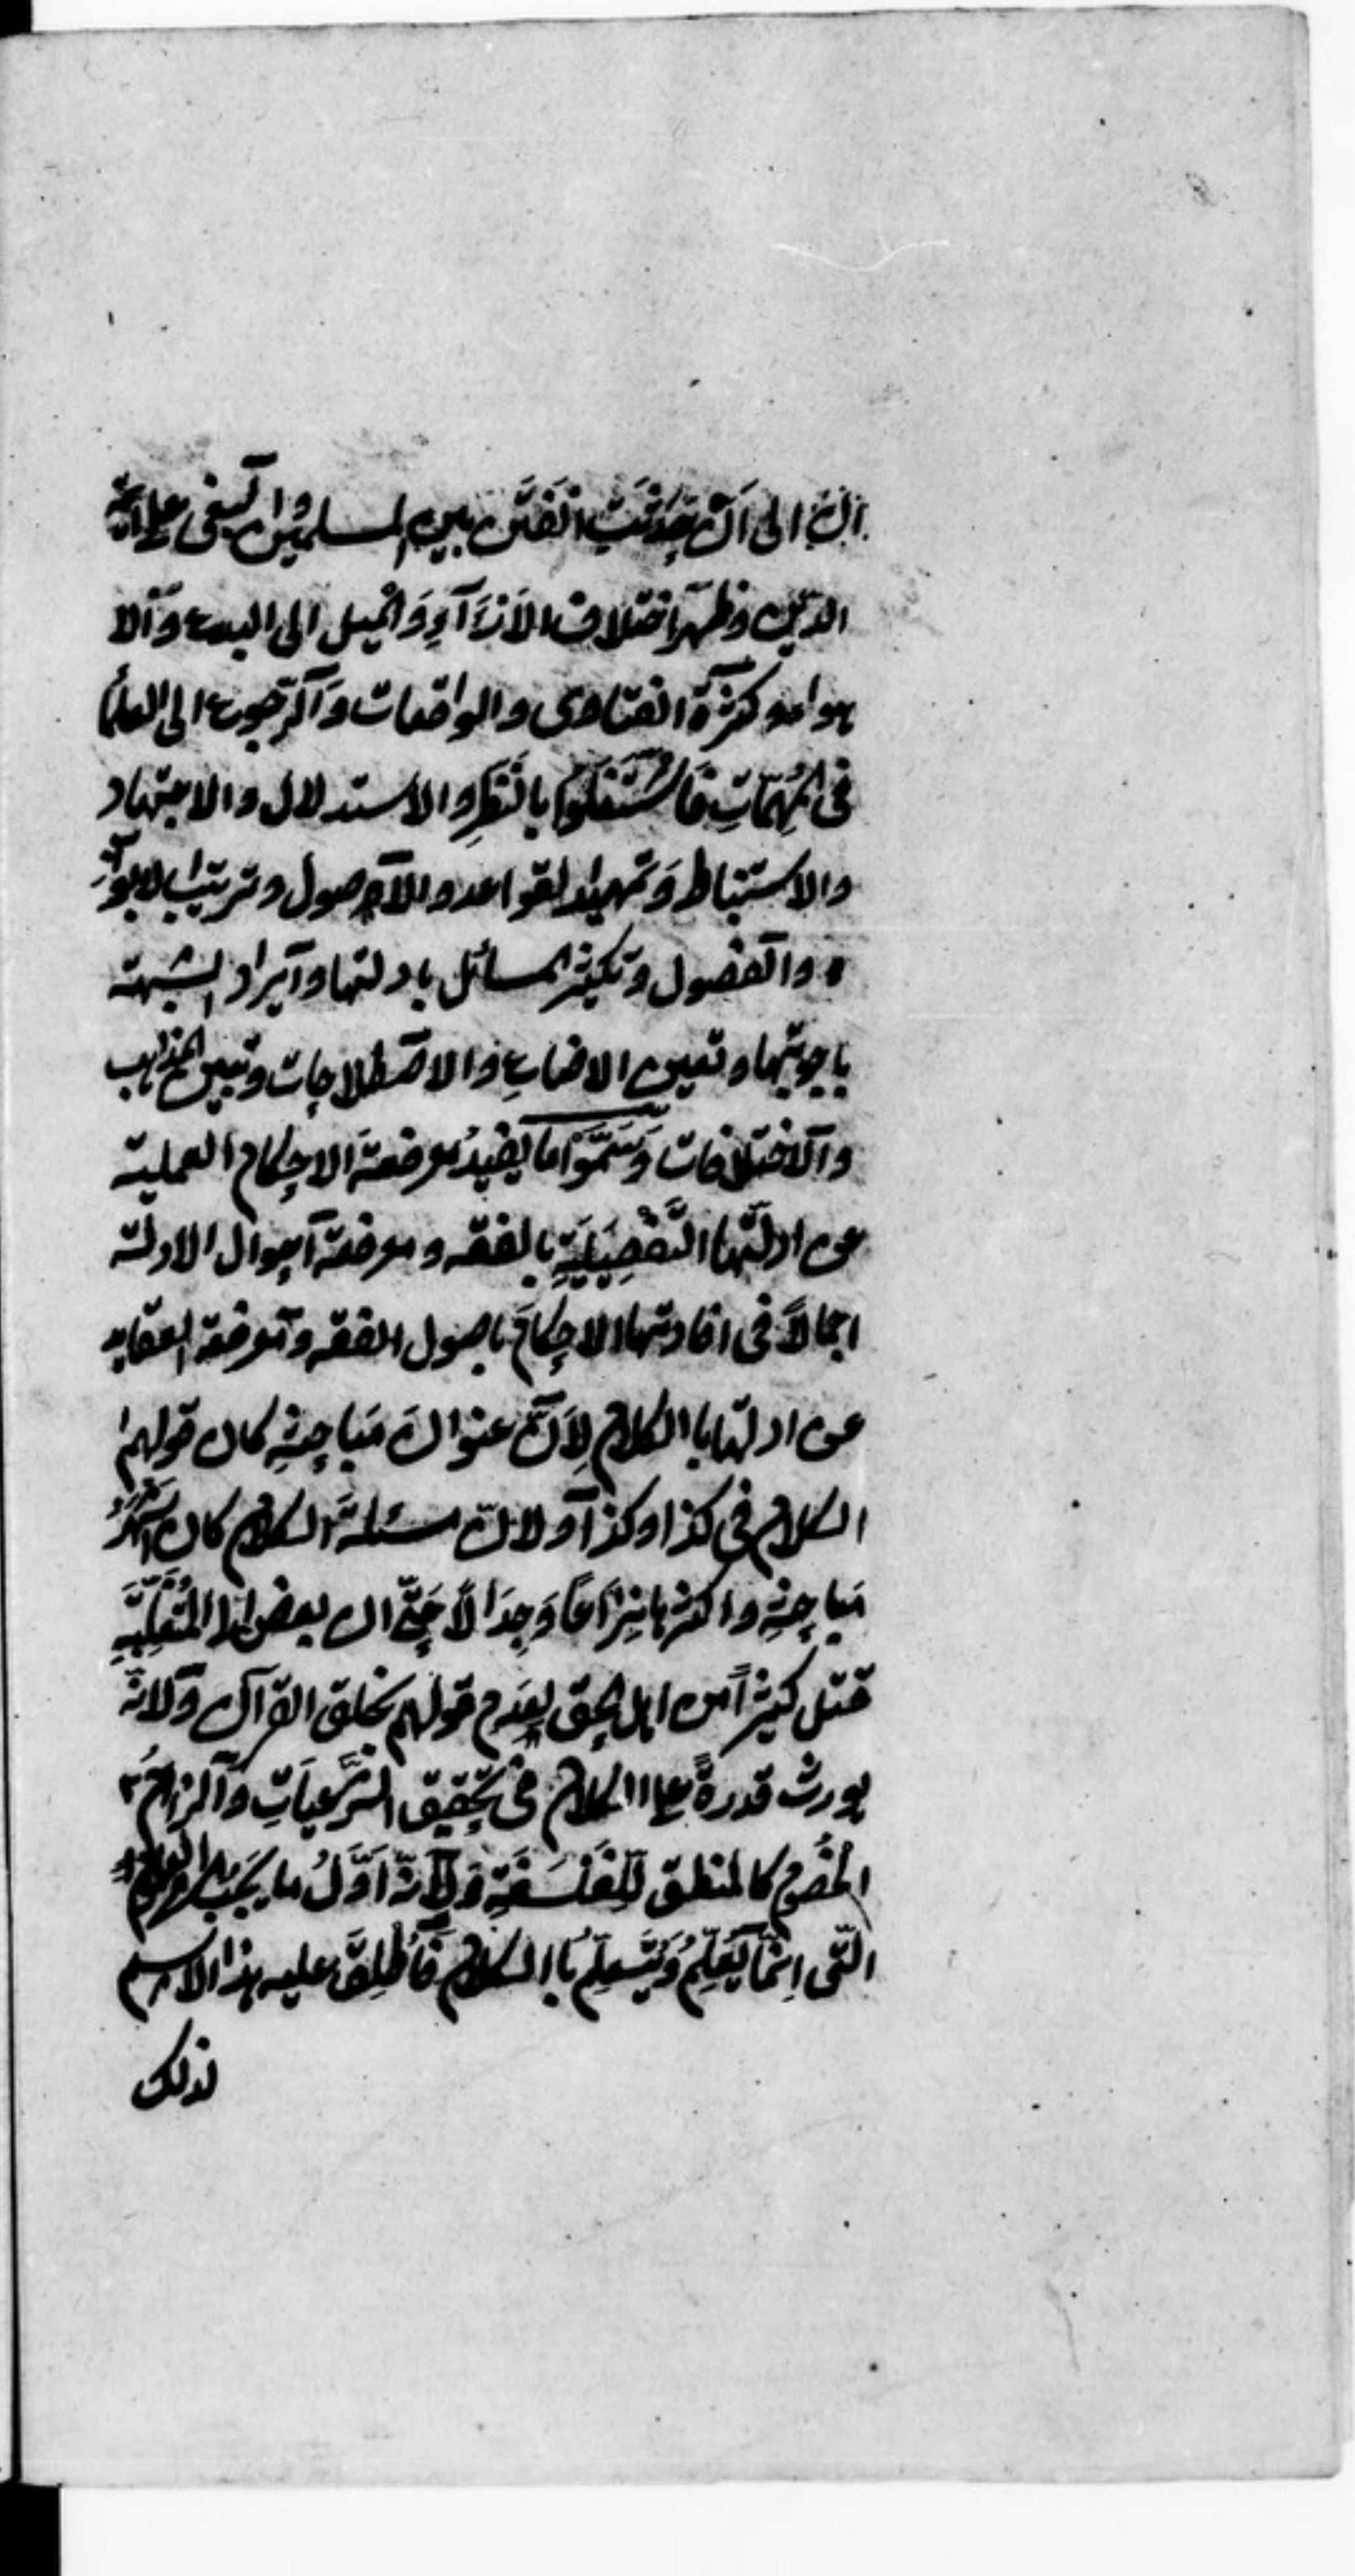 الى اَنْ حَدَثَتِ الفِتَن بين المسلمين والبغى على ائمة
الدين وظهر اختلاف الاٰرَآءِ وَالميل الى البدع والا
هواء وكثرة الفتاوى والواقعات والرجوع الى العلما
فى المُهِمّاتِ فَاشْتَغَلُوا بالنّظرِ والاستدلال والاجتهاد
والاستنباط وَتمهيد القواعد والاصول وترتيب الابوا
ب والفصول وتكثير المسائل بادلتها وايراد الشبهة
باجوبتها وتعيين الاوضاع والاصطلاحات وتبيين المذاهب
والاختلافات وَسَمَّوْا ما يفيدُ معرفةَ الاحكام العملية
عن ادلّتها التَّفْصِيلِيَّةِ بالفقه ومعرفة احوال الادلة
اجمالاً فى افادتها الاحكامَ باصول الفقه ومعرفة العقايد
عن ادلتها با الكلام لِاَنّ عنوانَ مَباحِثِه كان قولهم
الكلام فى كذا وكذا ولانّ مسئلةَ الكلام كان اشهرُ
مَباحِثِه واكثرها نِزاعًا وَجِدَالاً حَتَّى ان بعض المُتَغَلِّبَةِ
قتل كثيرًا من اهل الحق لعدم قولهم بخلق القرآن ولانّه
يورث قدرةً على الكلام فى تحقيق الشَّرْعِيَاتِ والزام
الخصوم كالمنطق لِلفَلْسَفَةِ وَلِاَنّه اَوَّلُ ما يَجبُ من العلوم
التّى اِنّما يُعَلَّمُ وَيُتَعلّمُ با الكلام فَاُطْلِقَ عليه هذا الاسم
لذلك